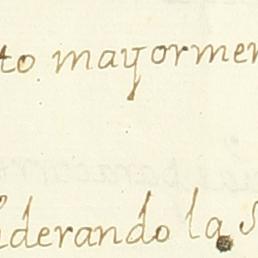 to mayormen
siderando la s